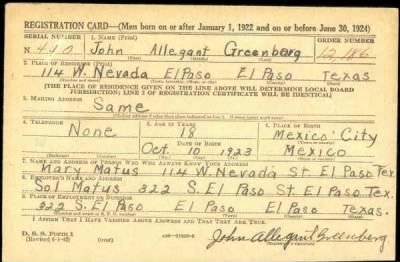 REGISTRATION CARD—(Men born on or after January 1, 1922 and on or before June 30, 1924)
SERIAL NUMBER 1. NAME (Print) ORDER NUMBER
N. 440 John Allegant Greenberg 12,186
(First) (Middle) (Last)
2. PLACE OF RESIDENCE (Print)
114 W. Nevada El Paso El Paso Texas
[THE PLACE OF RESIDENCE GIVEN ON THE LINE ABOVE WILL DETERMINE LOCAL BOARD
JURISDICTION; LINE 2 OF REGISTRATION CERTIFICATE WILL BE IDENTICAL]
3. MAILING ADDRESS
Same
4. TELEPHONE 5. AGE IN YEARS 6. PLACE OF BIRTH
None 18 Mexico City
DATE OF BIRTH
Oct. 10 1923 Mexico
7. NAME AND ADDRESS OF PERSON WHO WILL ALWAYS KNOW YOUR ADDRESS
Mary Matus 114 W. Nevada St. El Paso Tex.
8. EMPLOYER'S NAME AND ADDRESS
Sol Matus 322 S. El Paso St El Paso Tex.
9. PLACE OF EMPLOYMENT OR BUSINESS
322 S. El Paso El Paso El Paso Texas.
I AFFIRM THAT I HAVE VERIFIED ABOVE ANSWERS AND THAT THEY ARE TRUE.
D. S. S. Form 1
John Allegant Greenberg